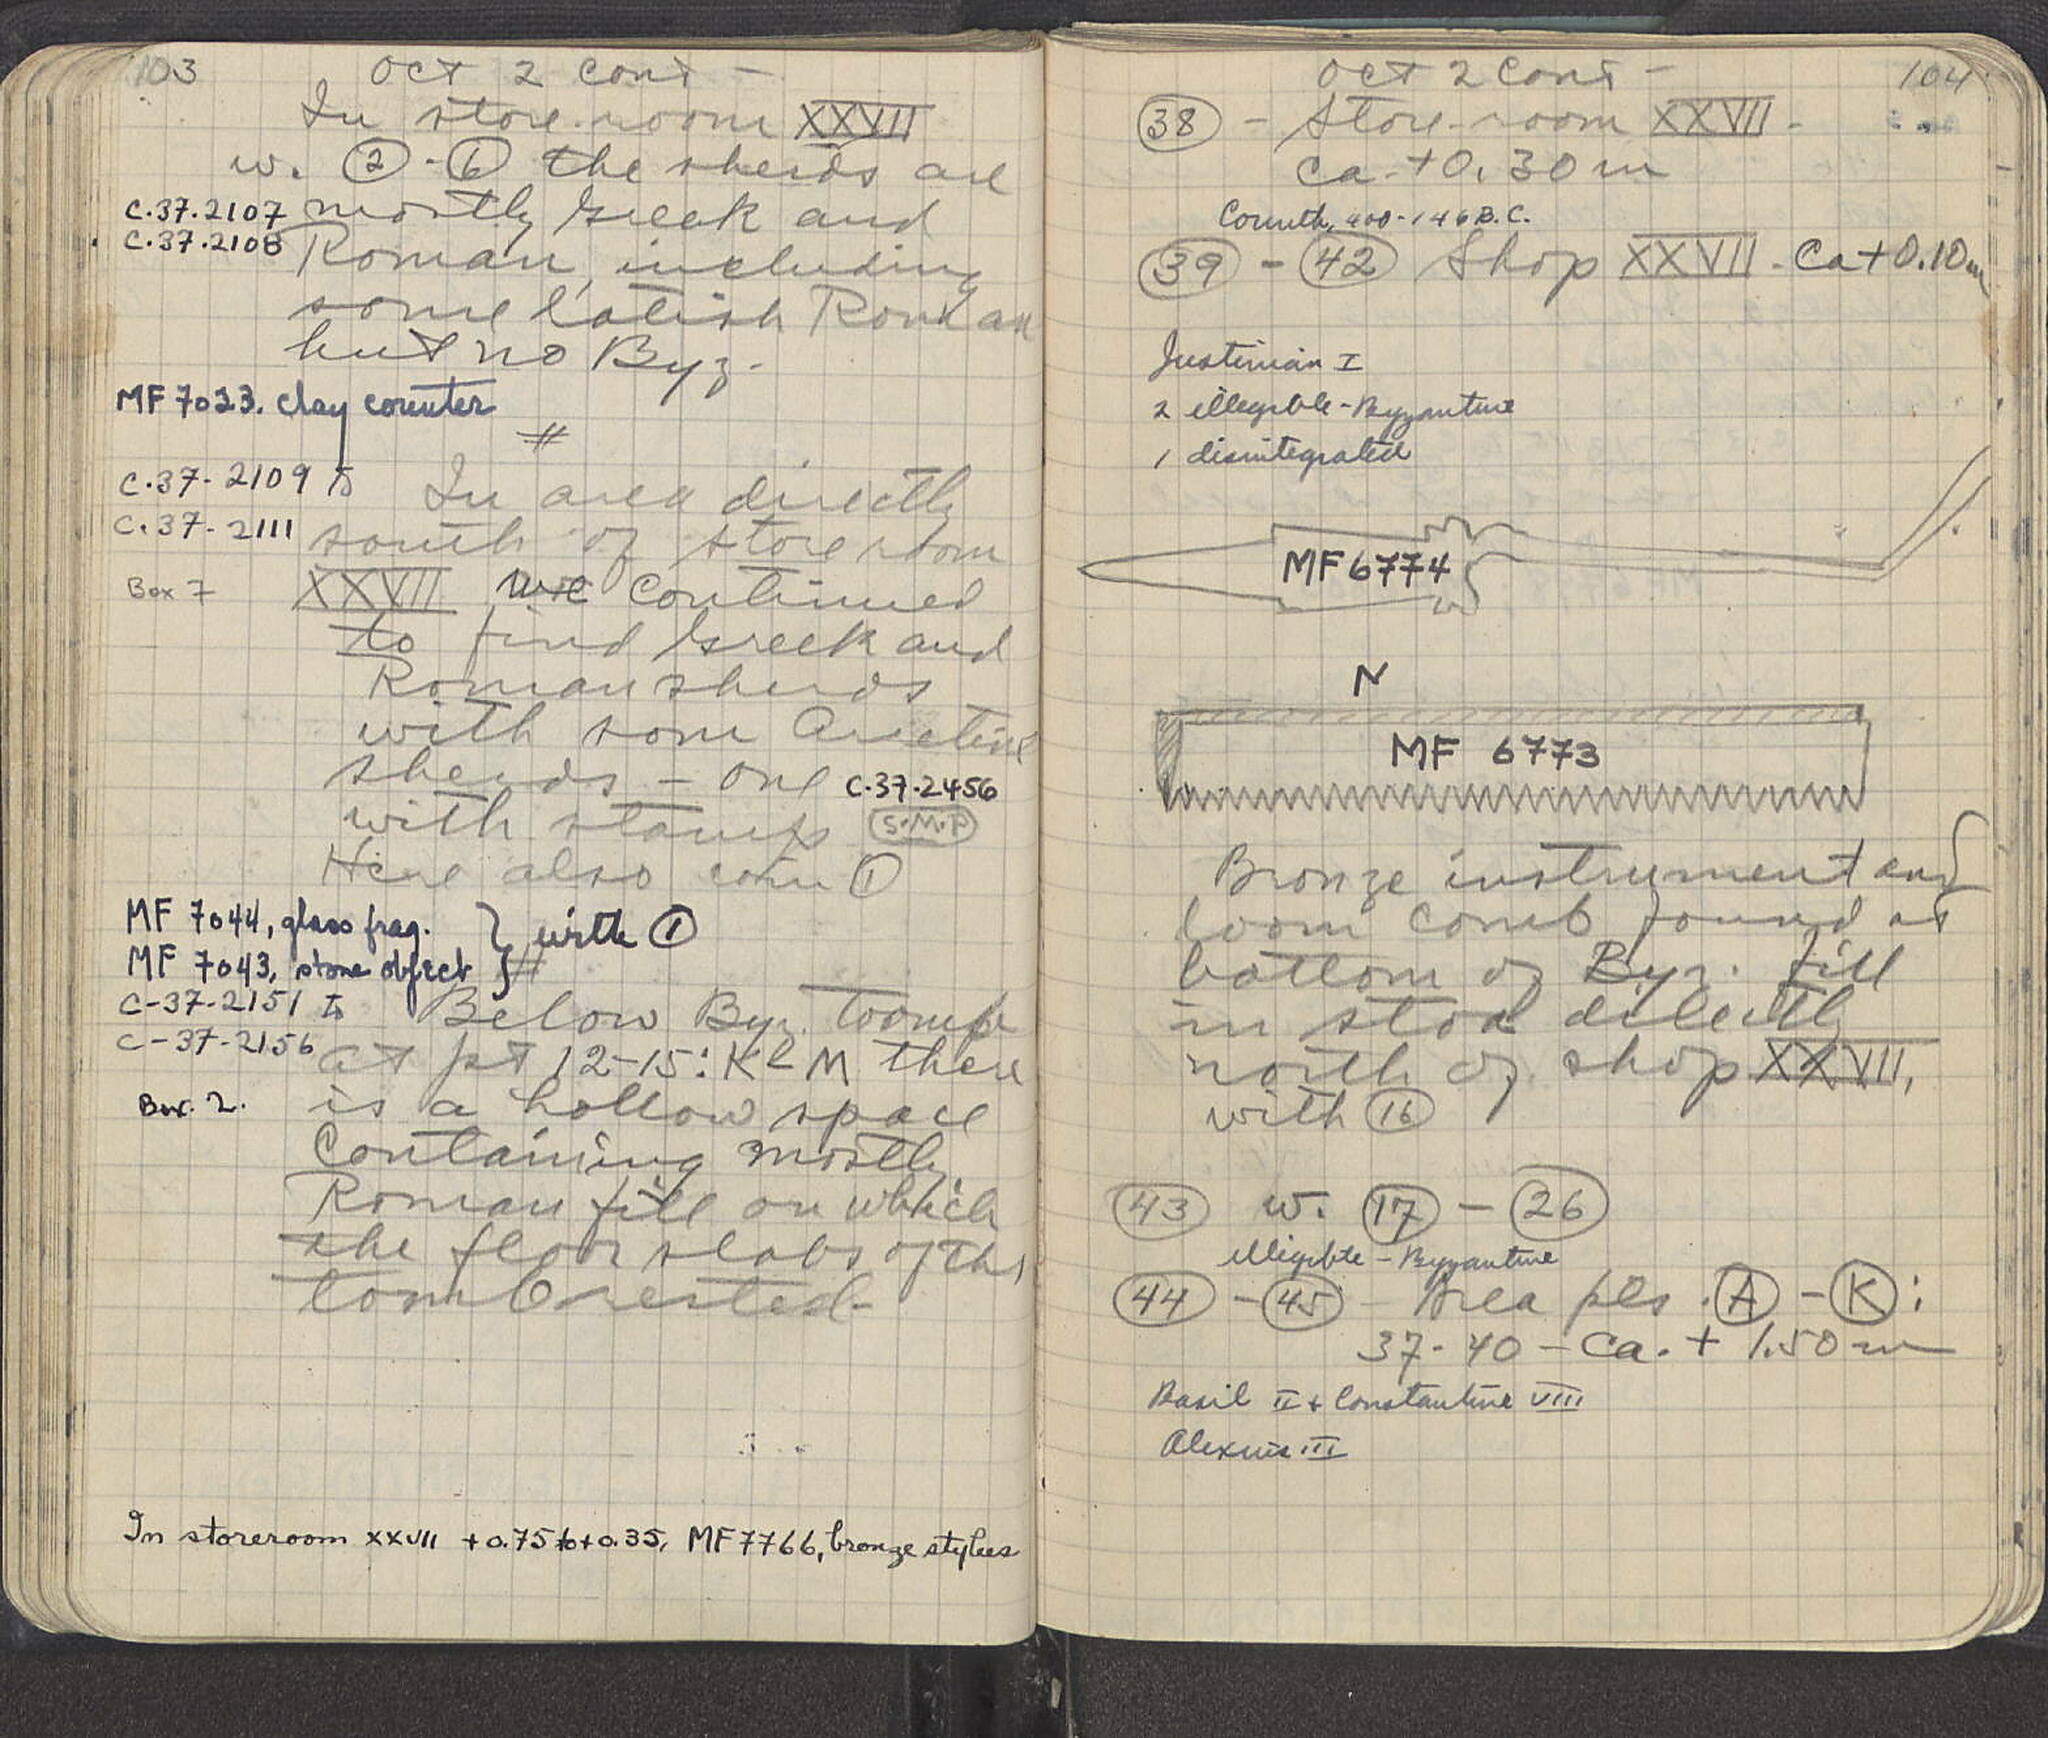 103 Oct 2 Cont -
In store-room XXVII
w. (2) - (6) the sherds are
C.37.2107 mostly Greek and
C.37.2108 Roman, including
some latish Roman
but no Byz.
MF 7023. clay counter
#
C.37-2109 to In area directly
C.37-2111 south of store room
Box 7 XXVII we continued
to find Greek and
Roman sherds
with som Arretine
sherds - one C.37.2456
with stamp (S.M.P)
Here also coin (1)
MF 7044, glass frag. } with (1)
MF 7043, stone object } #
C-37-2151 to Below Byz. toomb
C-37-2156 at pt 12-15: K-M there
Box. 2. is a hollow space
Containing mostly
Roman fill on which
the floor slabs of the
tomb rested-
In storeroom XXVII +0.75 to +0.35, MF 7766, bronze stylus
Oct 2 Cont - 104
(38) - Store-room XXVII -
Ca. +0.30m
Corinth, 400-146 B.C.
(39) - (42) Shop XXVII - Ca +0.10m
Justinian I
2 illegible - Byzantine
1 disintegrated
MF 6774
N
MF 6773
Bronze instrument and
loom comb found at
bottom of Byz. fill
in stoa directly
north of shop XXVII,
with (16)
(43) w. (17) - (26)
illegible - Byzantine
(44) - (45) - Area pts. (A) - (K) :
37-40 - Ca. + 1.50m
Basil II + Constantine VIII
Alexius III